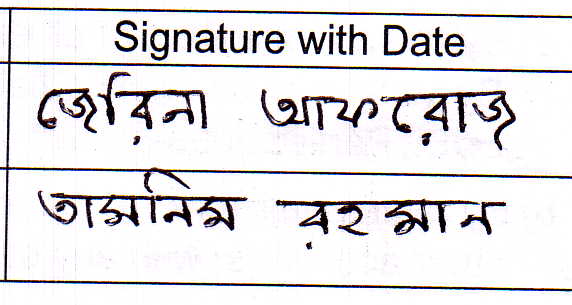 Signature with Date
জেরিনা আফরোজ
তাসনিম রহমান